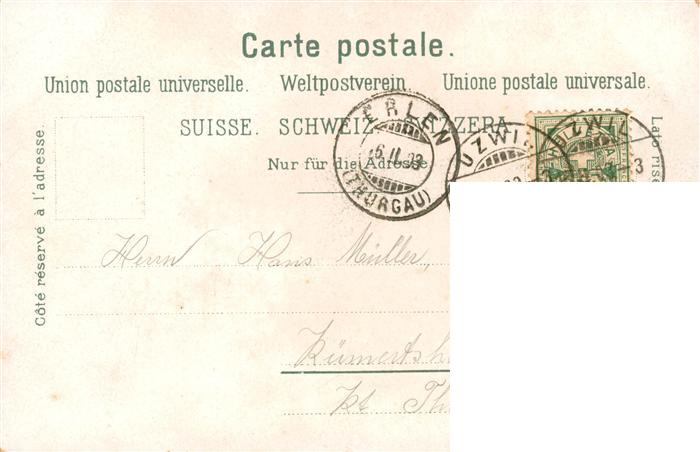 Carte postale.
Union postale universelle. Weltpostverein Unione postale universale.
SUISSE. SCHWEIZ. SVIZZERA
Nur für die Adresse.
Côté réservé à l'adresse.
ERLEN
(THURGAU)
UZWIL
UZWIL
Herrn Hans Müller,
Kt